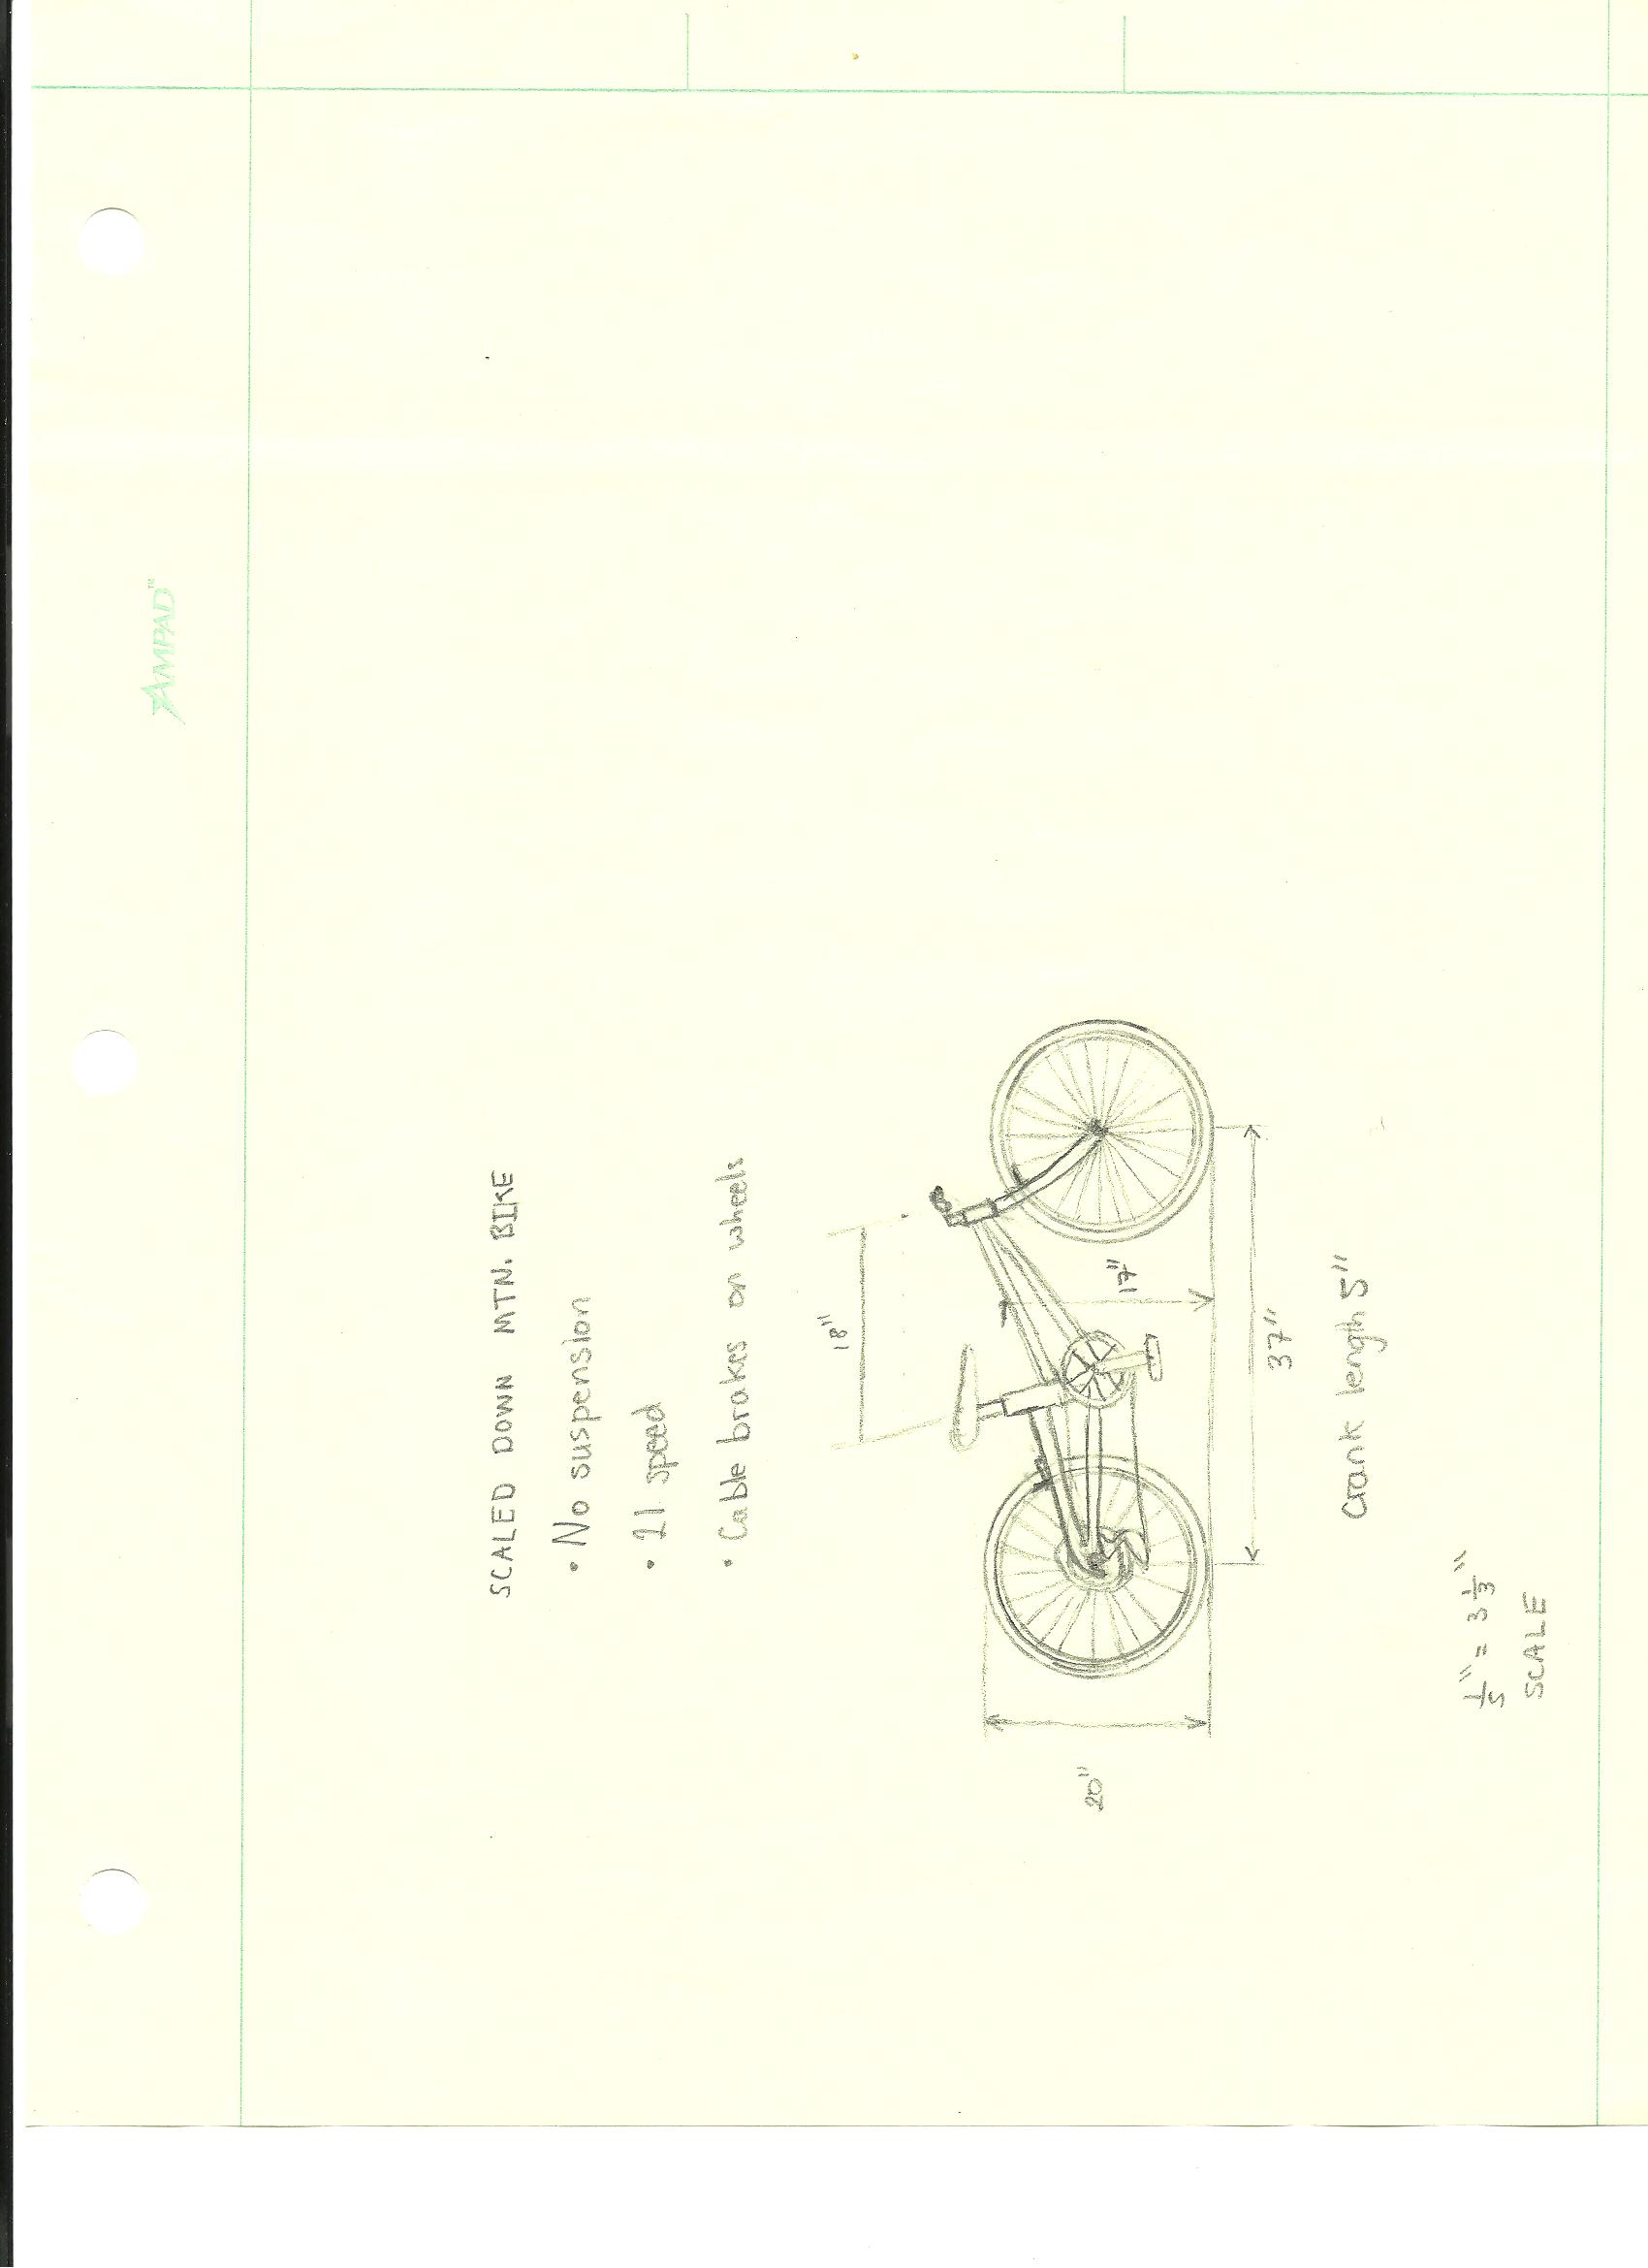 AMPAD™
SCALED DOWN MTN. BIKE
• No suspension
• 21 speed
• Cable brakes on wheels
18"
17"
20"
37"
Crank length 5"
1/5" = 3 1/3"
SCALE